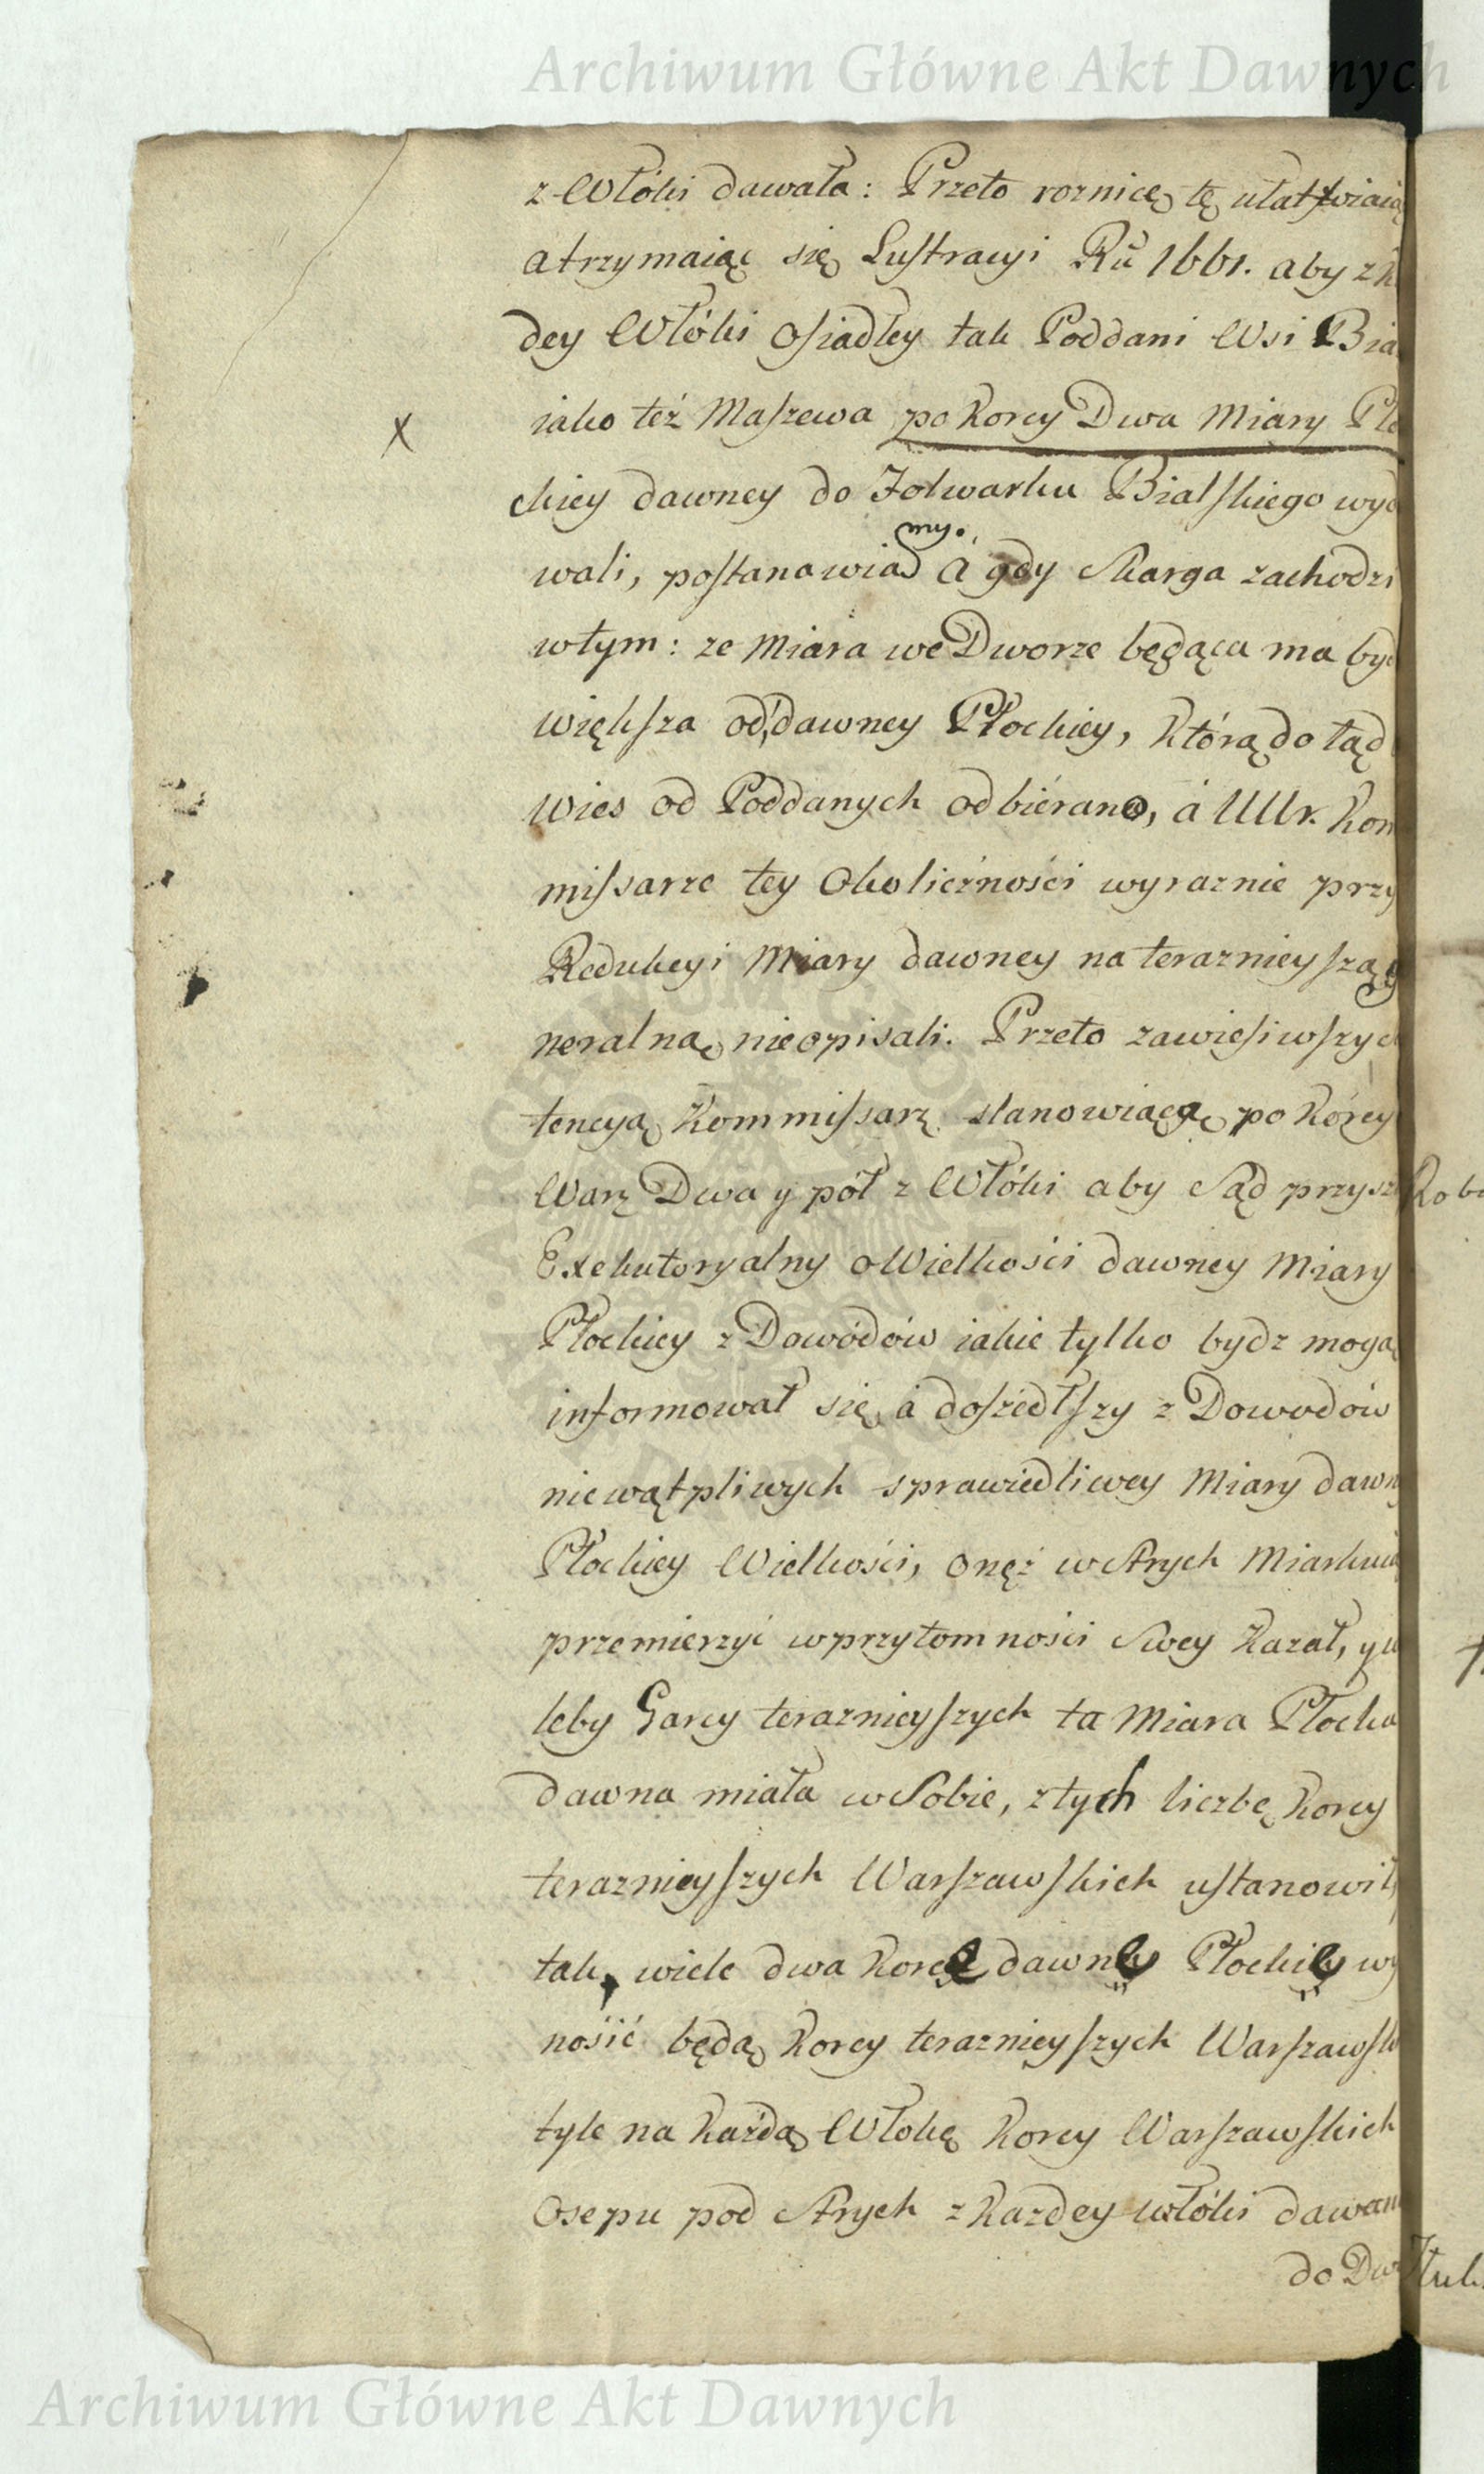 Archiwum Główne Akt Dawnych
z Włóki dawała: Przeto roznicę tę ułatwiaią
a trzymaiąc się Lustracyi Rů 1661. aby z k
dey Włóki osiadłey tak Poddani Wsi Bia
x
iako też Maszewa po Korcy Dwa Miary Pło
ckiey dawney do Folwarku Bialskiego wyd
my.
wali, postanawia á gdy Skarga zachodzi
w tym: ze Miara we Dworze będąca ma byd
większa od dawney Płockiey, którą do tąd
wies od Poddanych odbiérano, á UUr. Kom
missarze tey Okoliczności wyraznie przy
Redukcyi Miary dawney na teraznieyszą g
neralną nieopisali. Przeto zawiesiwszy
tencyą Kommissarz stanowiącą po Kórcy
Warz Dwa y pół z Włóki aby Sąd przysz
Exekutoryalny o Wielkości dawney Miary
Płockiey z Dowódów iakie tylko bydz mogą
informował się á doszedłszy z Dowodów
niewątpliwych sprawiedliwey Miary dawn
Płockiey Wielkości, onęż w Strych Miarku
przemierzyć w przytomności Swey Kazał, y w
leby Garcy teraznieyszych ta Miara Płocka
dawna miała w Sobie, z tych liczbę Korcy
teraznieyszych Warszawskich ustanowił,
tak, wiele dwa Korce dawney Płockiey wy
nosić będą Korcy teraznieyszych Warszawsk
tyle na Każdą Włókę Korcy Warszawskich
Osepu pod Strych z Kazdey włóki dawan
do Dw
Archiwum Główne Akt Dawnych